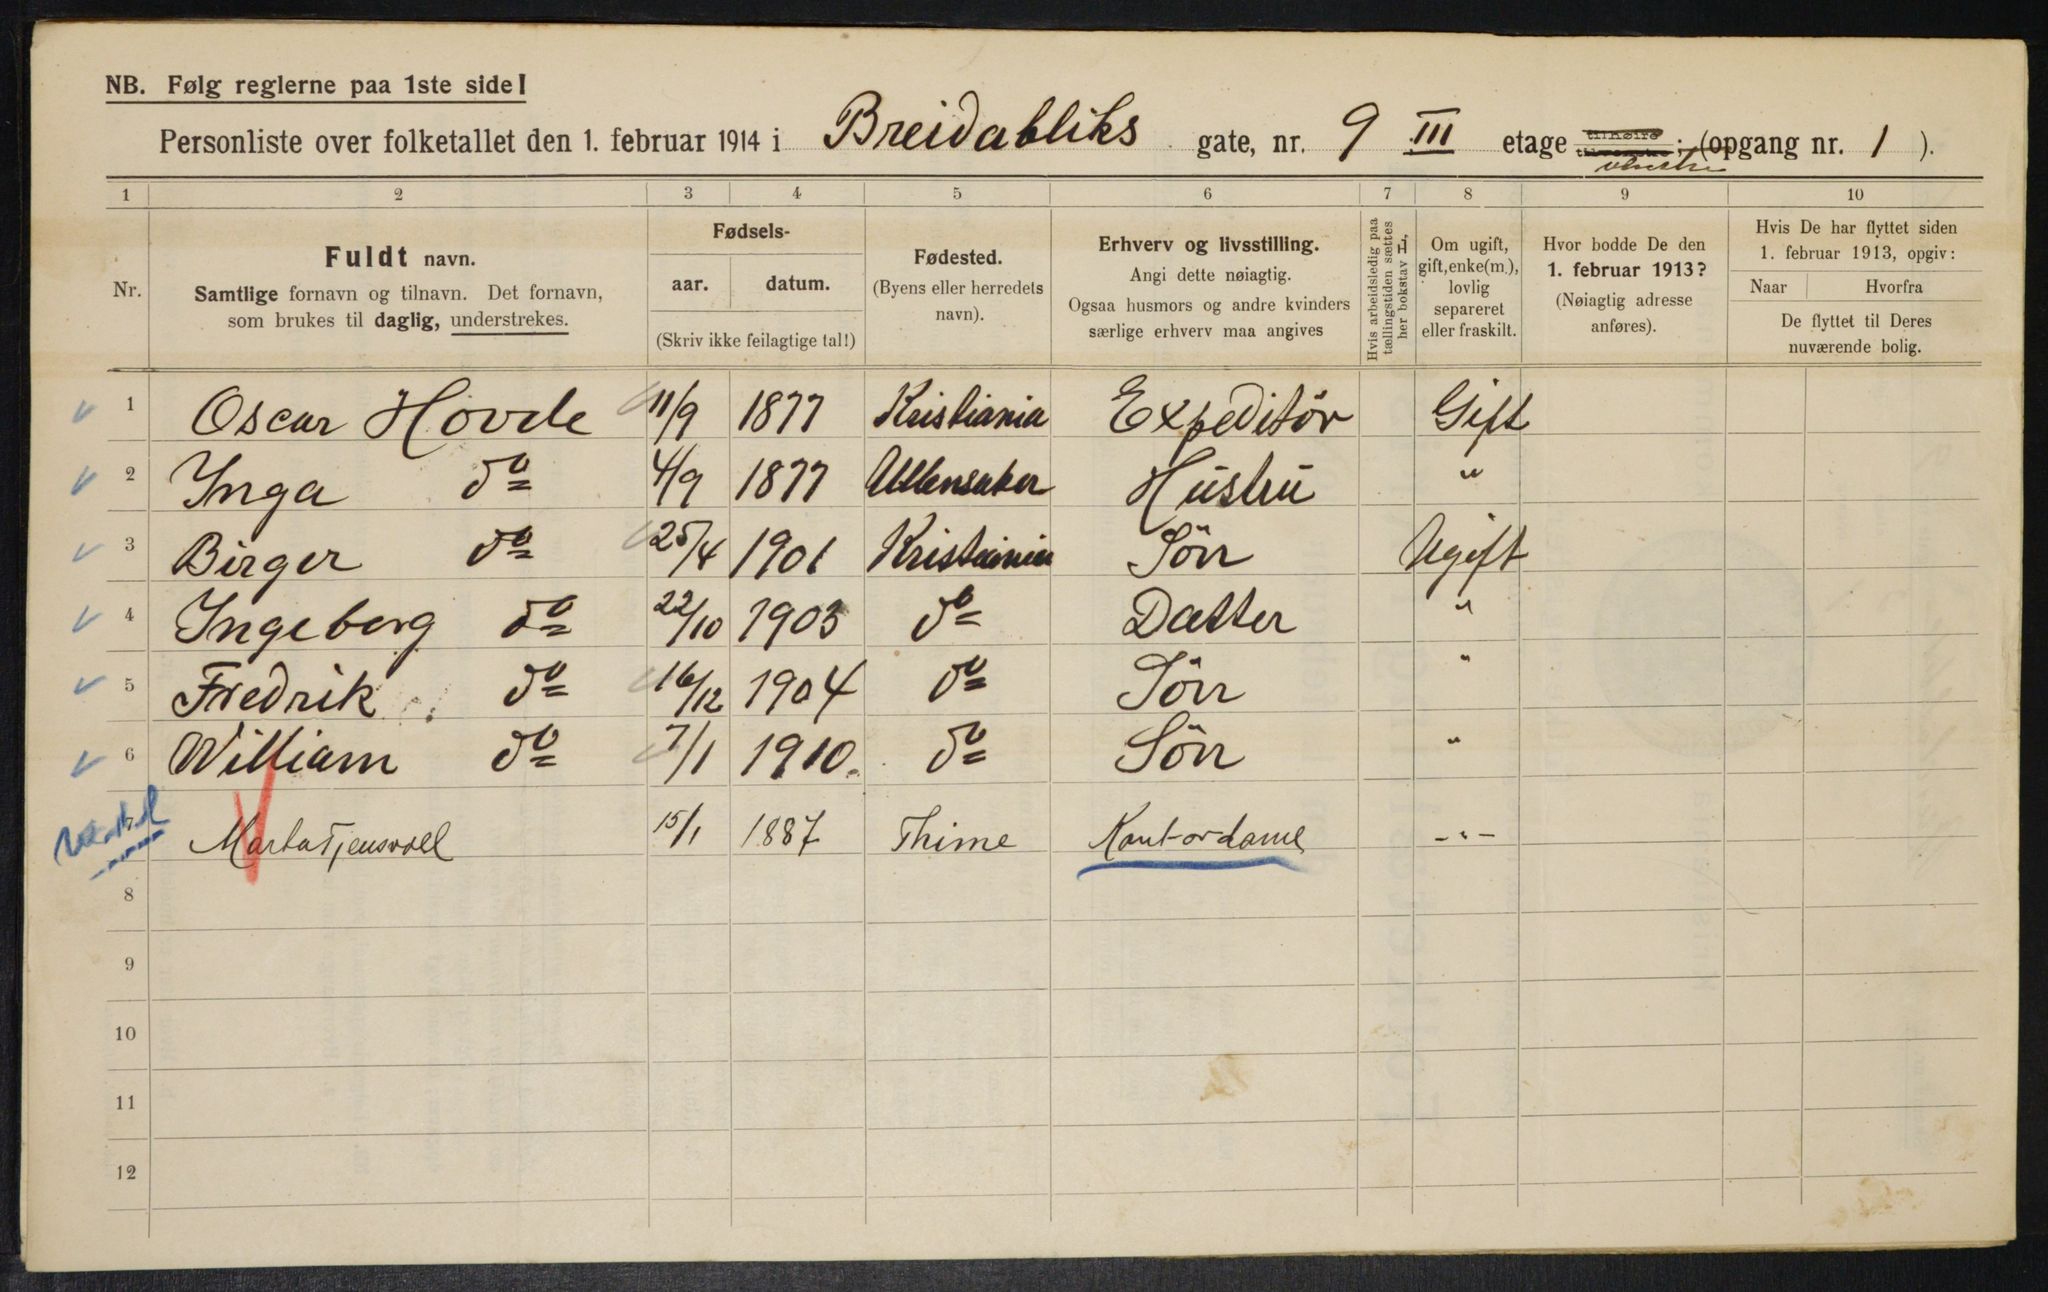 NB. Følg reglerne paa 1ste side!
Personliste over folketallet den 1. februar 1914 i Breidabliks gate, nr. 9 III etage tilhøire tilvenstre venstre; (opgang nr. 1 ).
1 2 3 4 5 6 7 8 9 10
Nr.
Fuldt navn.
Samtlige fornavn og tilnavn. Det fornavn,
som brukes til daglig, understrekes.
Fødsels-
aar. datum.
(Skriv ikke feilagtige tal!)
Fødested.
(Byens eller herredets
navn).
Erhverv og livsstilling.
Angi dette nøiagtig.
Ogsaa husmors og andre kvinders
særlige erhverv maa angives
Hvis arbeidsledig paa
tællingstiden sættes
her bokstav L,
Om ugift,
gift, enke(m.),
lovlig
separeret
eller fraskilt.
Hvor bodde De den
1. februar 1913?
(Nøiagtig adresse
anføres).
Hvis De har flyttet siden
1. februar 1913, opgiv:
Naar Hvorfra
De flyttet til Deres
nuværende bolig.
1 Oscar Hovde 11/9 1877 Kristiania Expeditör Gift
2 Inga do 4/9 1877 Ullensaker Hustru "
3 Birger do 25/4 1901 Kristiania Sön Ugift
4 Ingeborg do 22/10 1903 do Datter "
5 Fredrik do 16/12 1904 do Sön "
6 William do 7/1 1910. do Sön "
7 Marta Tjensvoll 15/1 1887 Thime Kontordame -"-
8
9
10
11
12